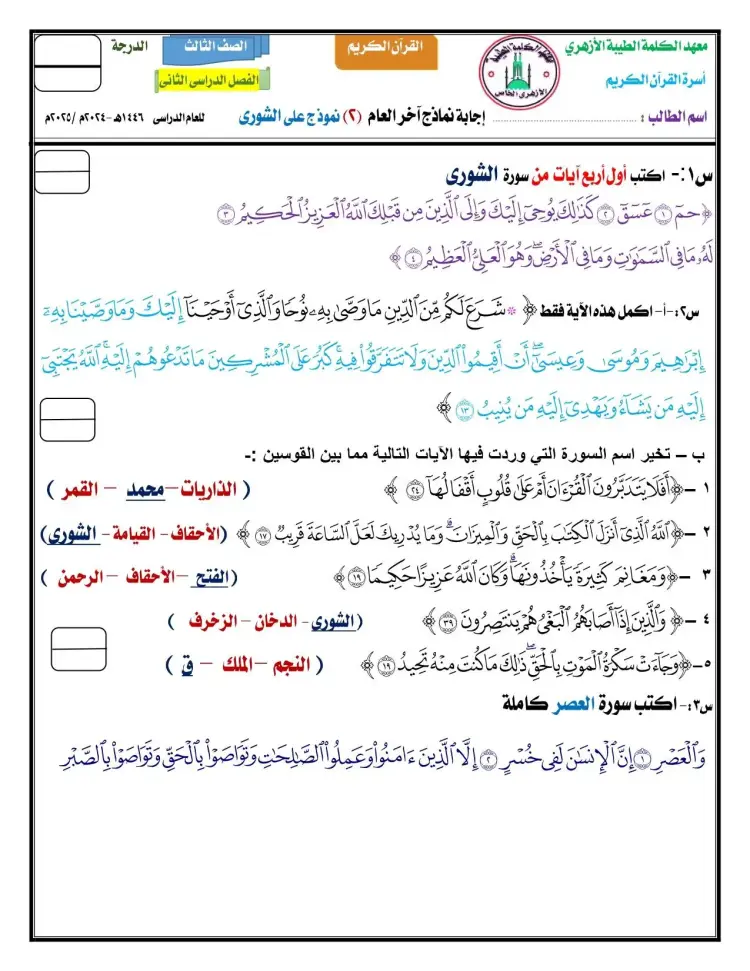 معهد الكلمة الطيبة الأزهري
القرآن الكريم
الصف الثالث
الدرجة
أسرة القرآن الكريم
الفصل الدراسى الثانى
اسم الطالب : ........................................ إجابة نماذج آخر العام (٢) نموذج على الشورى للعام الدراسى ١٤٤٦هـ -٢٠٢٤م /٢٠٢٥م
س١:- اكتب أول أربع آيات من سورة الشورى
﴿حمٓ ١ عٓسٓقٓ ٢ كَذَٰلِكَ يُوحِيٓ إِلَيۡكَ وَإِلَى ٱلَّذِينَ مِن قَبۡلِكَ ٱللَّهُ ٱلۡعَزِيزُ ٱلۡحَكِيمُ ٣
لَهُۥ مَا فِي ٱلسَّمَٰوَٰتِ وَمَا فِي ٱلۡأَرۡضِۖ وَهُوَ ٱلۡعَلِيُّ ٱلۡعَظِيمُ ٤ ﴾
س٢:-أ- اكمل هذه الآية فقط ﴿ * شَرَعَ لَكُم مِّنَ ٱلدِّينِ مَا وَصَّىٰ بِهِۦ نُوحٗا وَٱلَّذِيٓ أَوۡحَيۡنَآ إِلَيۡكَ وَمَا وَصَّيۡنَا بِهِۦٓ
إِبۡرَٰهِيمَ وَمُوسَىٰ وَعِيسَىٰٓۖ أَنۡ أَقِيمُواْ ٱلدِّينَ وَلَا تَتَفَرَّقُواْ فِيهِۚ كَبُرَ عَلَى ٱلۡمُشۡرِكِينَ مَا تَدۡعُوهُمۡ إِلَيۡهِۚ ٱللَّهُ يَجۡتَبِيٓ
إِلَيۡهِ مَن يَشَآءُ وَيَهۡدِيٓ إِلَيۡهِ مَن يُنِيبُ ١٣ ﴾
ب – تخير اسم السورة التي وردت فيها الآيات التالية مما بين القوسين :-
١ –﴿أَفَلَا يَتَدَبَّرُونَ ٱلۡقُرۡءَانَ أَمۡ عَلَىٰ قُلُوبٍ أَقۡفَالُهَآ ٢٤ ﴾ ( الذاريات –محمد – القمر )
٢ –﴿ٱللَّهُ ٱلَّذِيٓ أَنزَلَ ٱلۡكِتَٰبَ بِٱلۡحَقِّ وَٱلۡمِيزَانَۗ وَمَا يُدۡرِيكَ لَعَلَّ ٱلسَّاعَةَ قَرِيبٞ ١٧ ﴾ (الأحقاف- القيامة- الشورى)
٣ –﴿وَمَغَانِمَ كَثِيرَةٗ يَأۡخُذُونَهَاۗ وَكَانَ ٱللَّهُ عَزِيزًا حَكِيمٗا ١٩﴾ (الفتح –الأحقاف – الرحمن )
٤ –﴿ وَٱلَّذِينَ إِذَآ أَصَابَهُمُ ٱلۡبَغۡيُ هُمۡ يَنتَصِرُونَ ٣٩ ﴾ (الشورى- الدخان – الزخرف )
٥–﴿وَجَآءَتۡ سَكۡرَةُ ٱلۡمَوۡتِ بِٱلۡحَقِّۖ ذَٰلِكَ مَا كُنتَ مِنۡهُ تَحِيدُ ١٩ ﴾ ( النجم –الملك – ق )
س٣:- اكتب سورة العصر كاملة
وَٱلۡعَصۡرِ ١ إِنَّ ٱلۡإِنسَٰنَ لَفِي خُسۡرٍ ٢ إِلَّا ٱلَّذِينَ ءَامَنُواْ وَعَمِلُواْ ٱلصَّٰلِحَٰتِ وَتَوَاصَوۡاْ بِٱلۡحَقِّ وَتَوَاصَوۡاْ بِٱلصَّبۡرِ